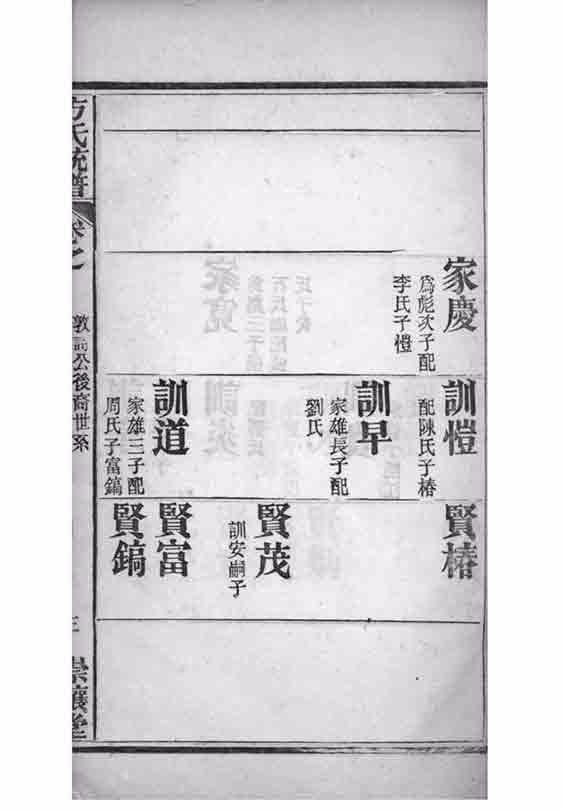 家慶
為彪次子配
李氏子愷
訓愷
配陳氏子椿
訓早
家雄長子配
劉氏
訓道
家雄三子配
周氏子富鎬
賢椿
賢茂
訓安嗣子
賢富
賢鎬
方氏統譜
卷之
敦誥公後裔世系
三
崇讓堂